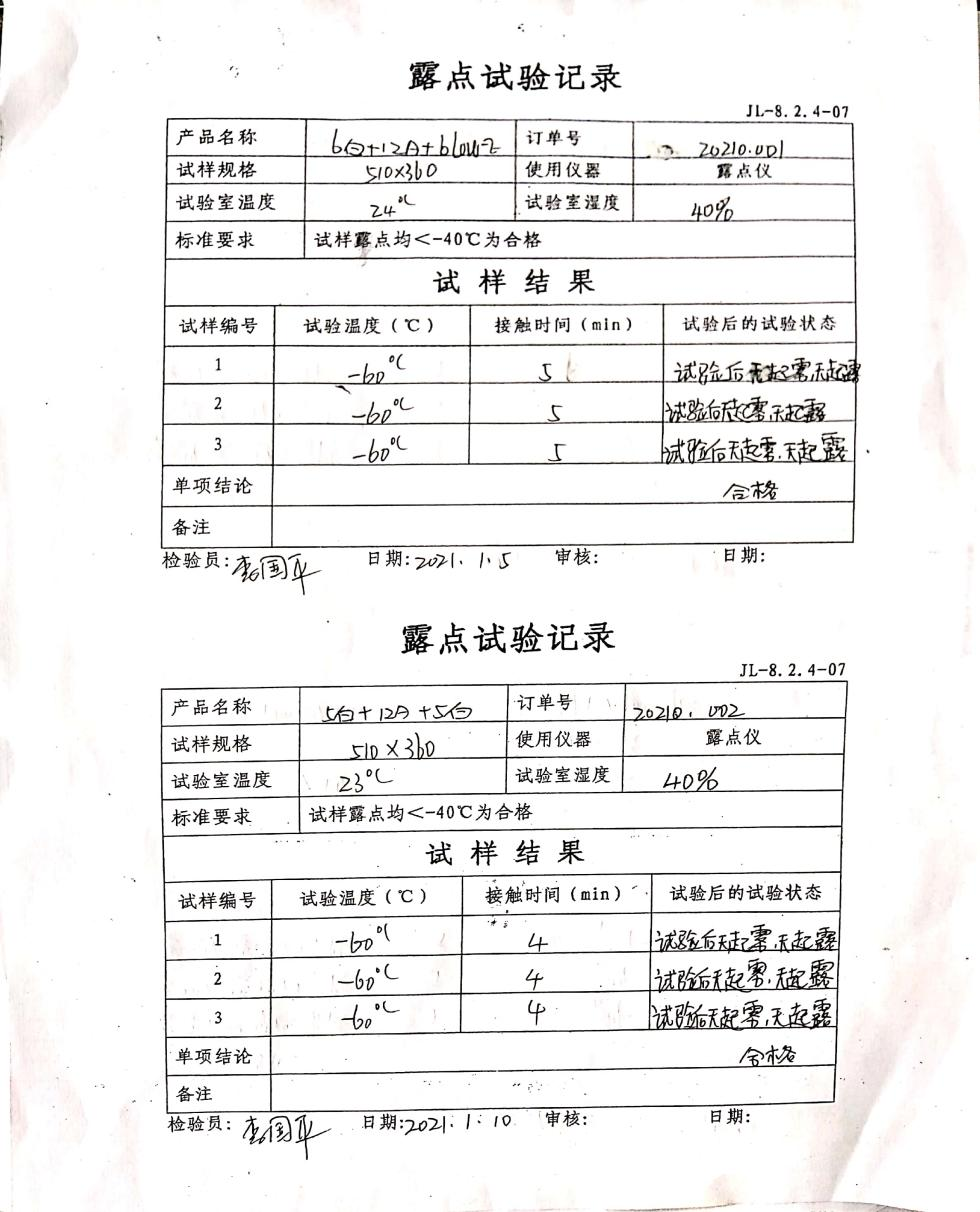 露点试验记录
JL-8.2.4-07
产品名称 6白+12A+6LOW-E 订单号 20210.001
试样规格 510×360 使用仪器 露点仪
试验室温度 24℃ 试验室湿度 40%
标准要求 试样露点均<-40℃为合格
试样结果
试样编号 试验温度(℃) 接触时间(min) 试验后的试验状态
1 -60℃ 5 试验后无起雾,无起露
2 -60℃ 5 试验后无起雾,无起露
3 -60℃ 5 试验后无起雾,无起露
单项结论 合格
备注
检验员:李国平 日期:2021.1.5 审核: 日期:
露点试验记录
JL-8.2.4-07
产品名称 5白+12A+5白 订单号 20210.002
试样规格 510×360 使用仪器 露点仪
试验室温度 23℃ 试验室湿度 40%
标准要求 试样露点均<-40℃为合格
试样结果
试样编号 试验温度(℃) 接触时间(min) 试验后的试验状态
1 -60℃ 4 试验后无起雾,无起露
2 -60℃ 4 试验后无起雾,无起露
3 -60℃ 4 试验后无起雾,无起露
单项结论 合格
备注
检验员:李国平 日期:2021.1.10 审核: 日期: